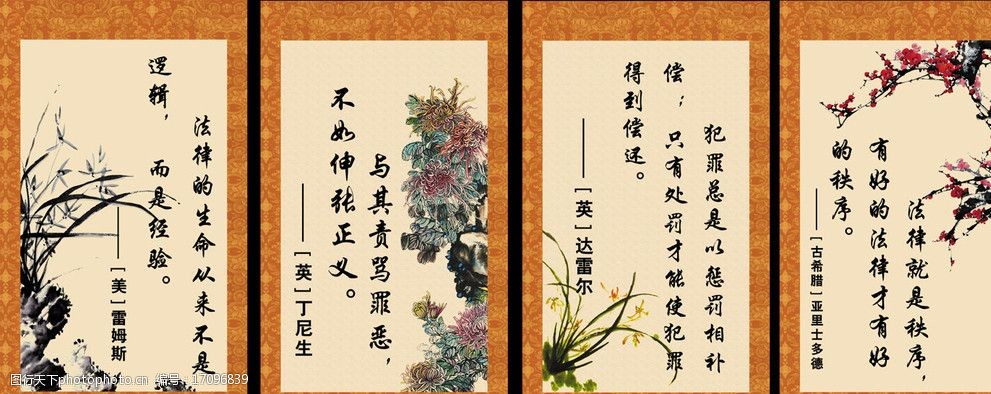 法律的生命从来不是
逻辑，而是经验。
——［美］雷姆斯
与其责骂罪恶，
不如伸张正义。
——［英］丁尼生
犯罪总是以惩罚相补
偿；只有处罚才能使犯罪
得到偿还。
——［英］达雷尔
法律就是秩序，
有好的法律才有好
的秩序。
——［古希腊］亚里士多德
图行天下photophoto.cn 编号：17096839